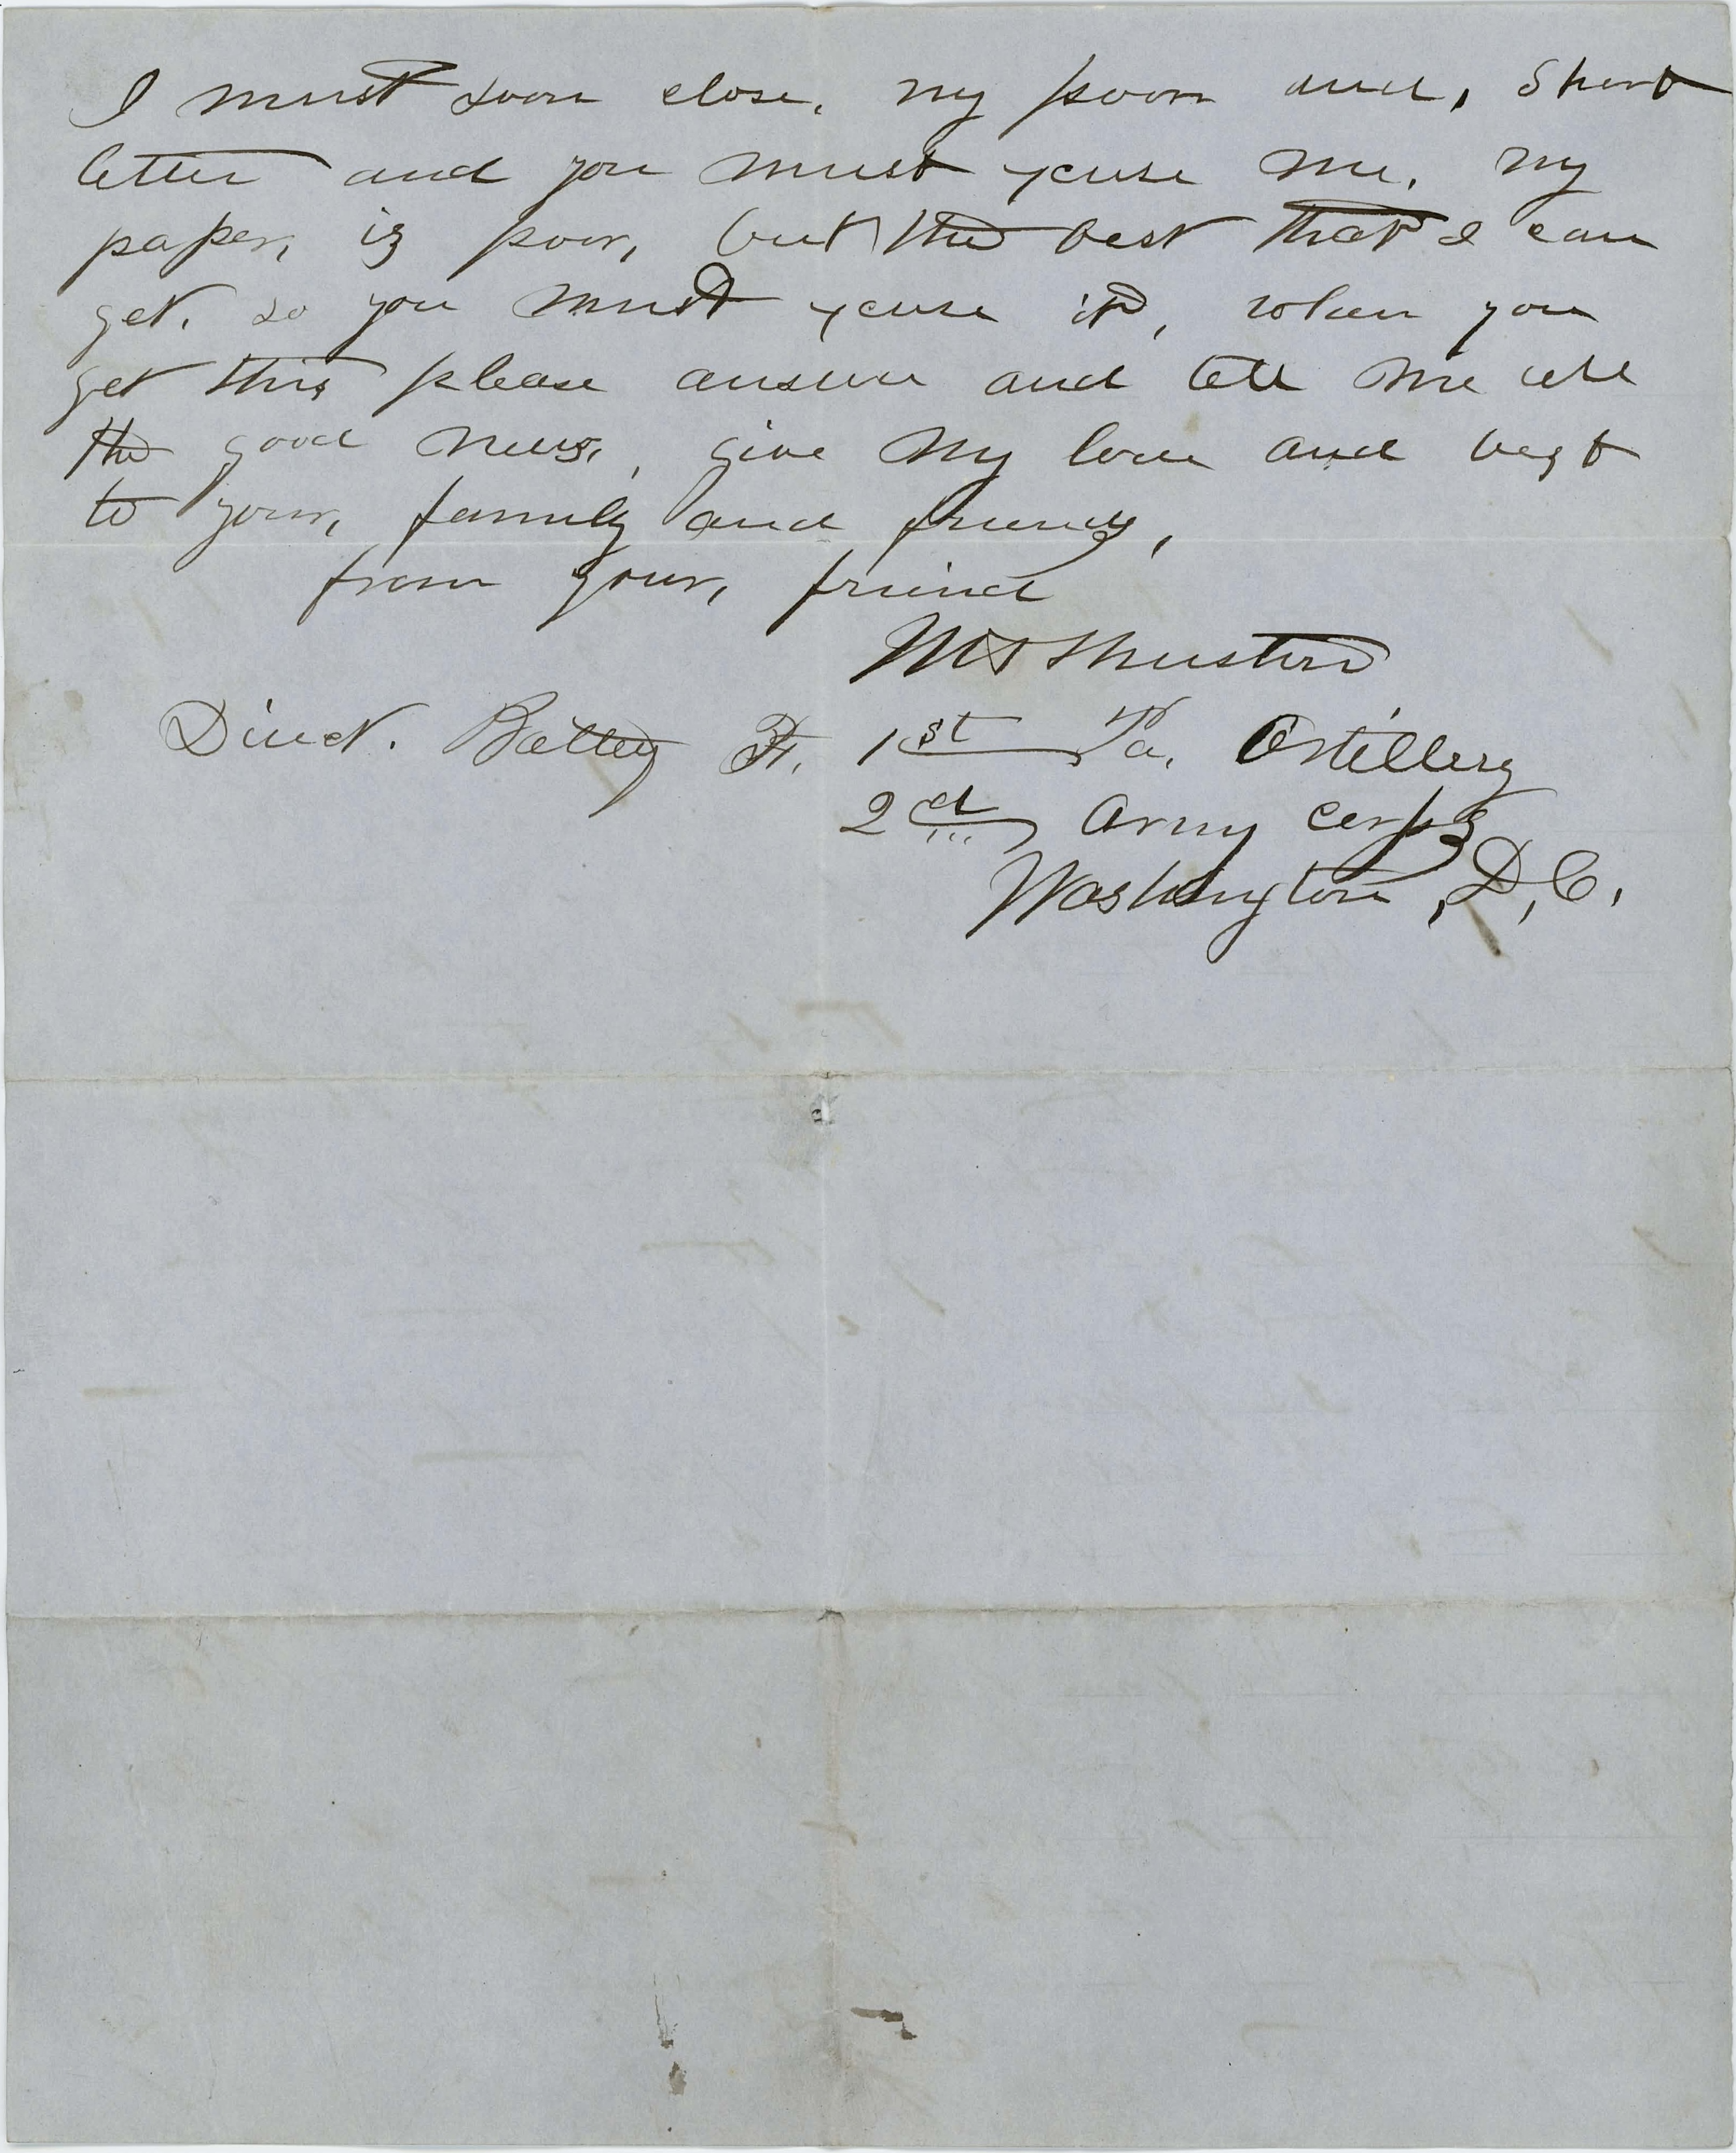 I must soon close. my poor and, short
letter and you must xcuse me. my
paper, is poor, but the best that I can
get. so you must xcuse it, when you
get this please answer and tell me all
the good news, give my love and best
to your, family and friends,
from your, friend
Direct. Battery F. 1st Pa. Artillery
2d Army Corps
Washington, D, C,